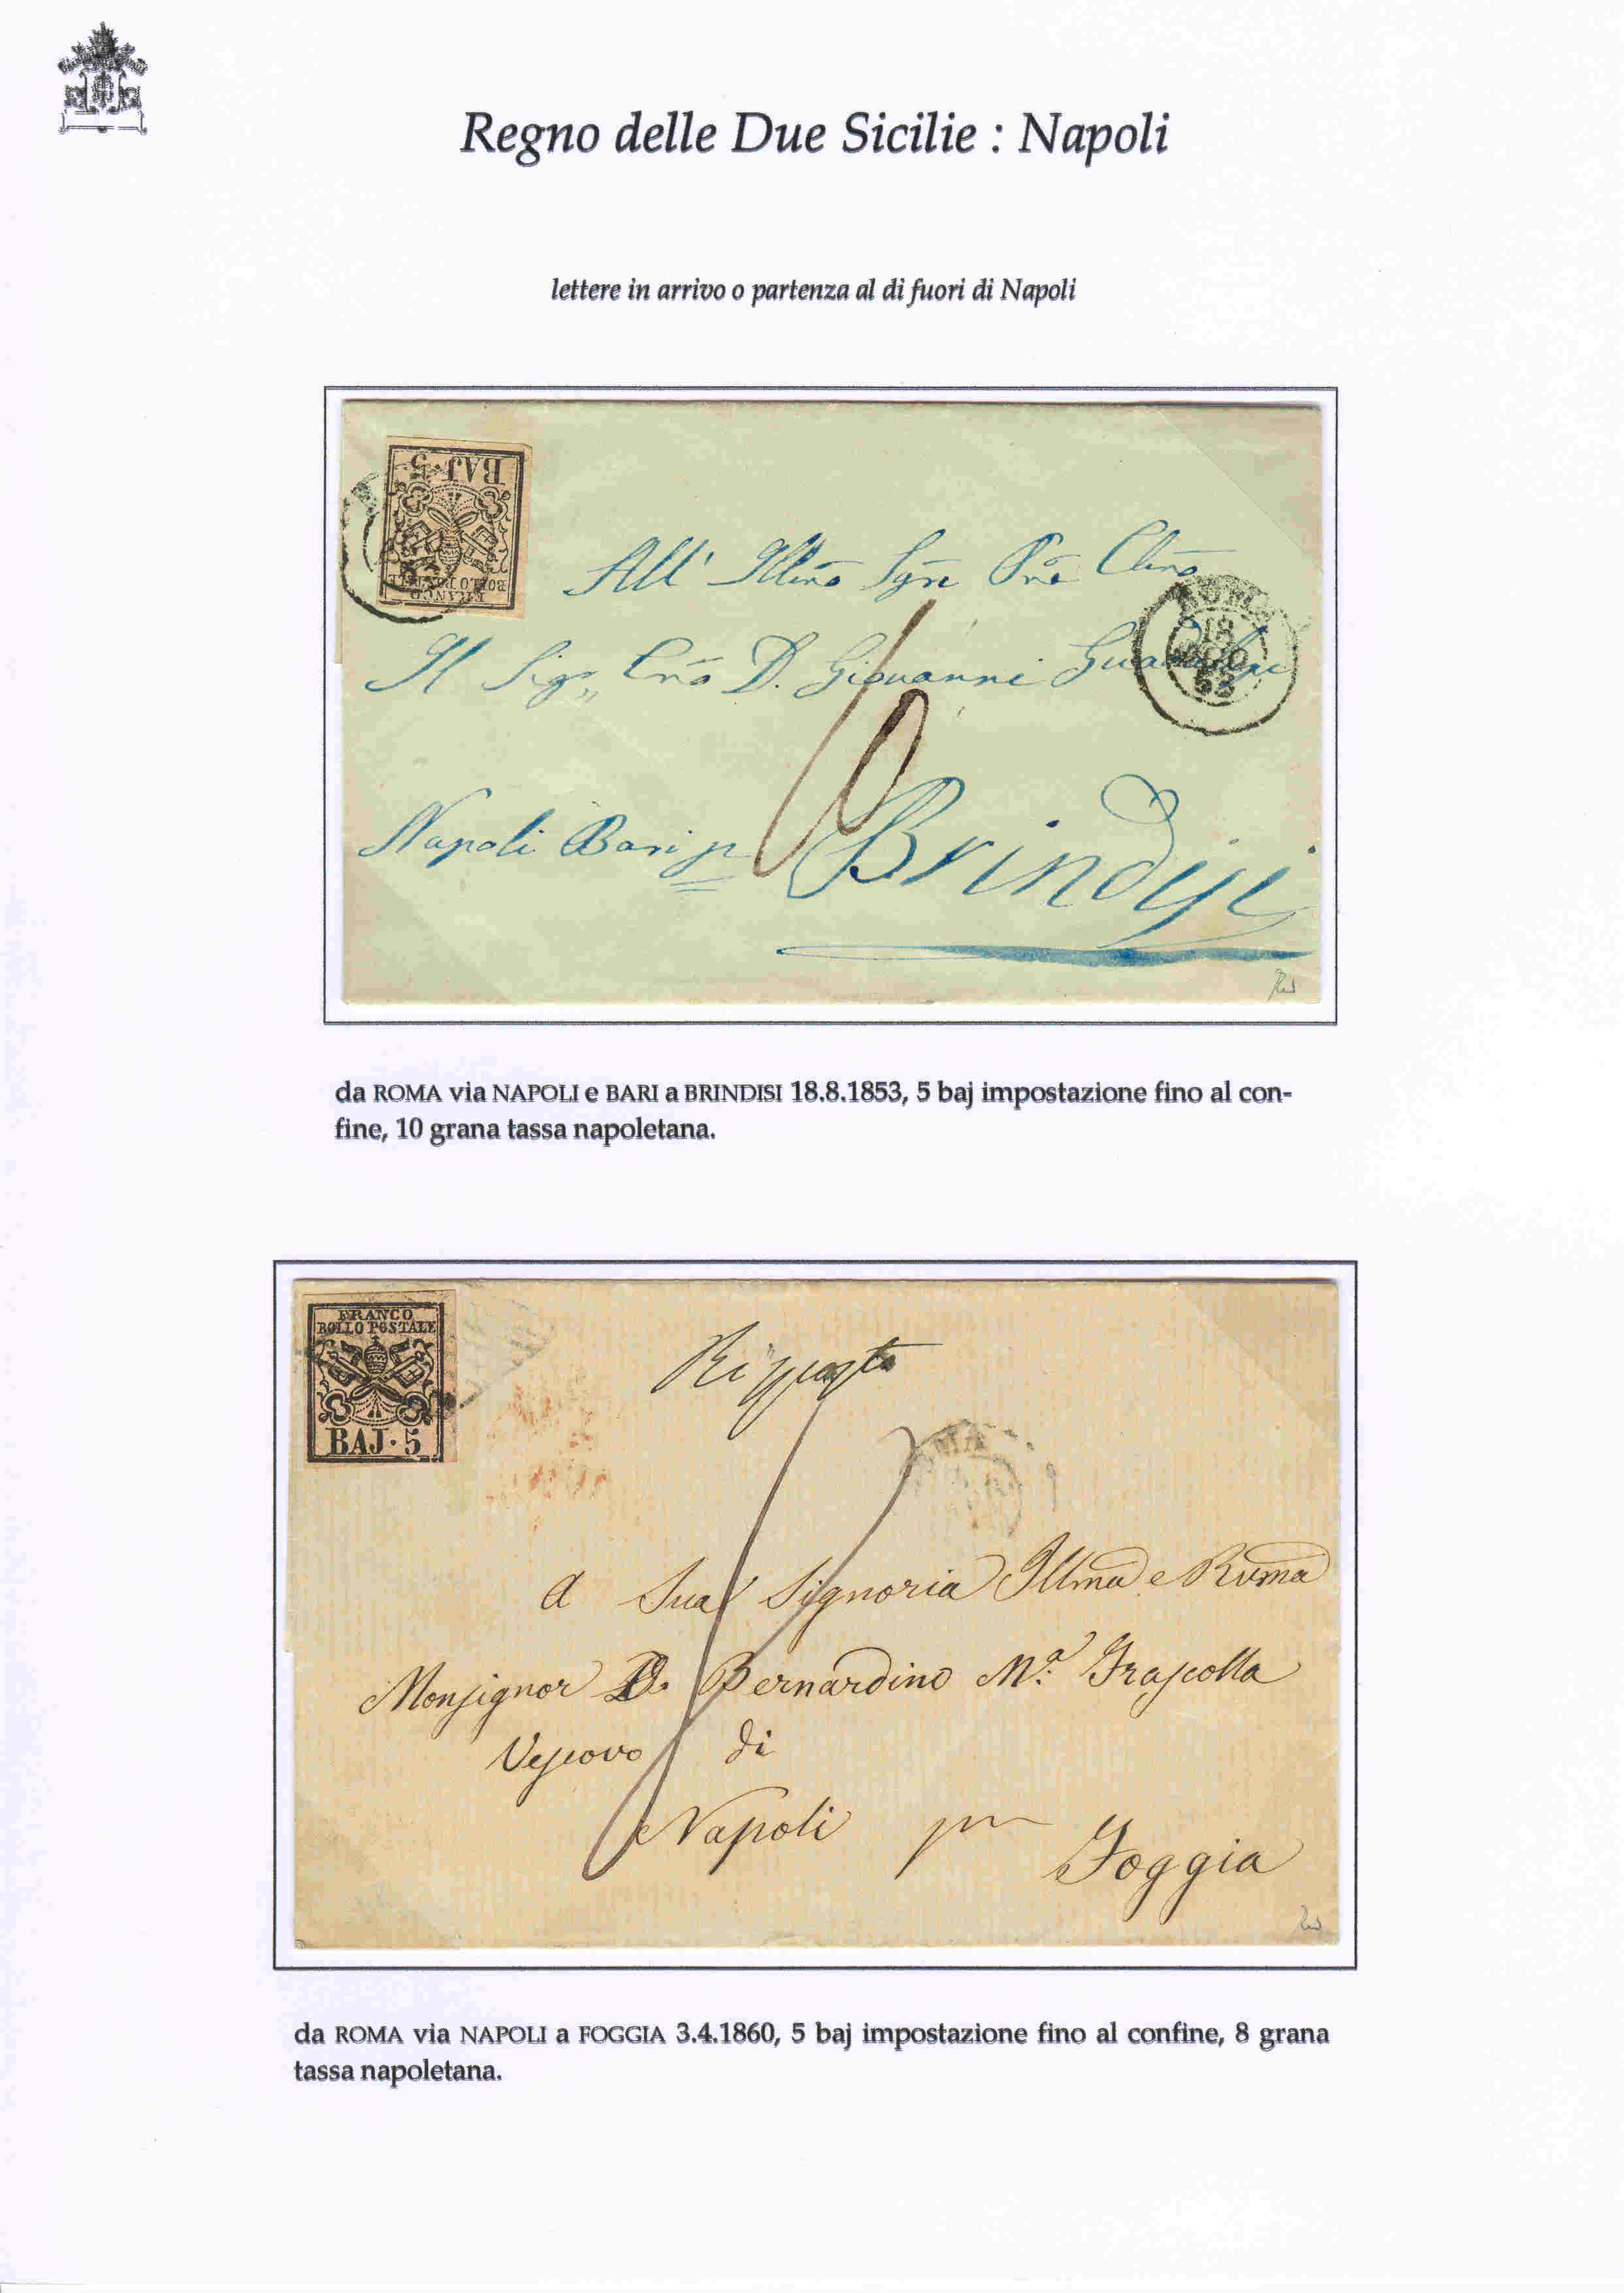 Regno delle Due Sicilie : Napoli
lettere in arrivo o partenza al di fuori di Napoli
BAJ·5
BOLLO POSTALE
FRANCO
All' Illmo Sgre Pne Clmo
ROMA
18
AGO
53
Il Sigr Cno D. Giovanni
10
Napoli Bari pr Brindisi
da ROMA via NAPOLI e BARI a BRINDISI 18.8.1853, 5 baj impostazione fino al con-
fine, 10 grana tassa napoletana.
FRANCO
BOLLO POSTALE
BAJ·5
Risposta
ROMA
8
A Sua Signoria Illma e Rvma
Monsignor D. Bernardino Ma. Frascolla
Vescovo di
Napoli pr Foggia
da ROMA via NAPOLI a FOGGIA 3.4.1860, 5 baj impostazione fino al confine, 8 grana
tassa napoletana.